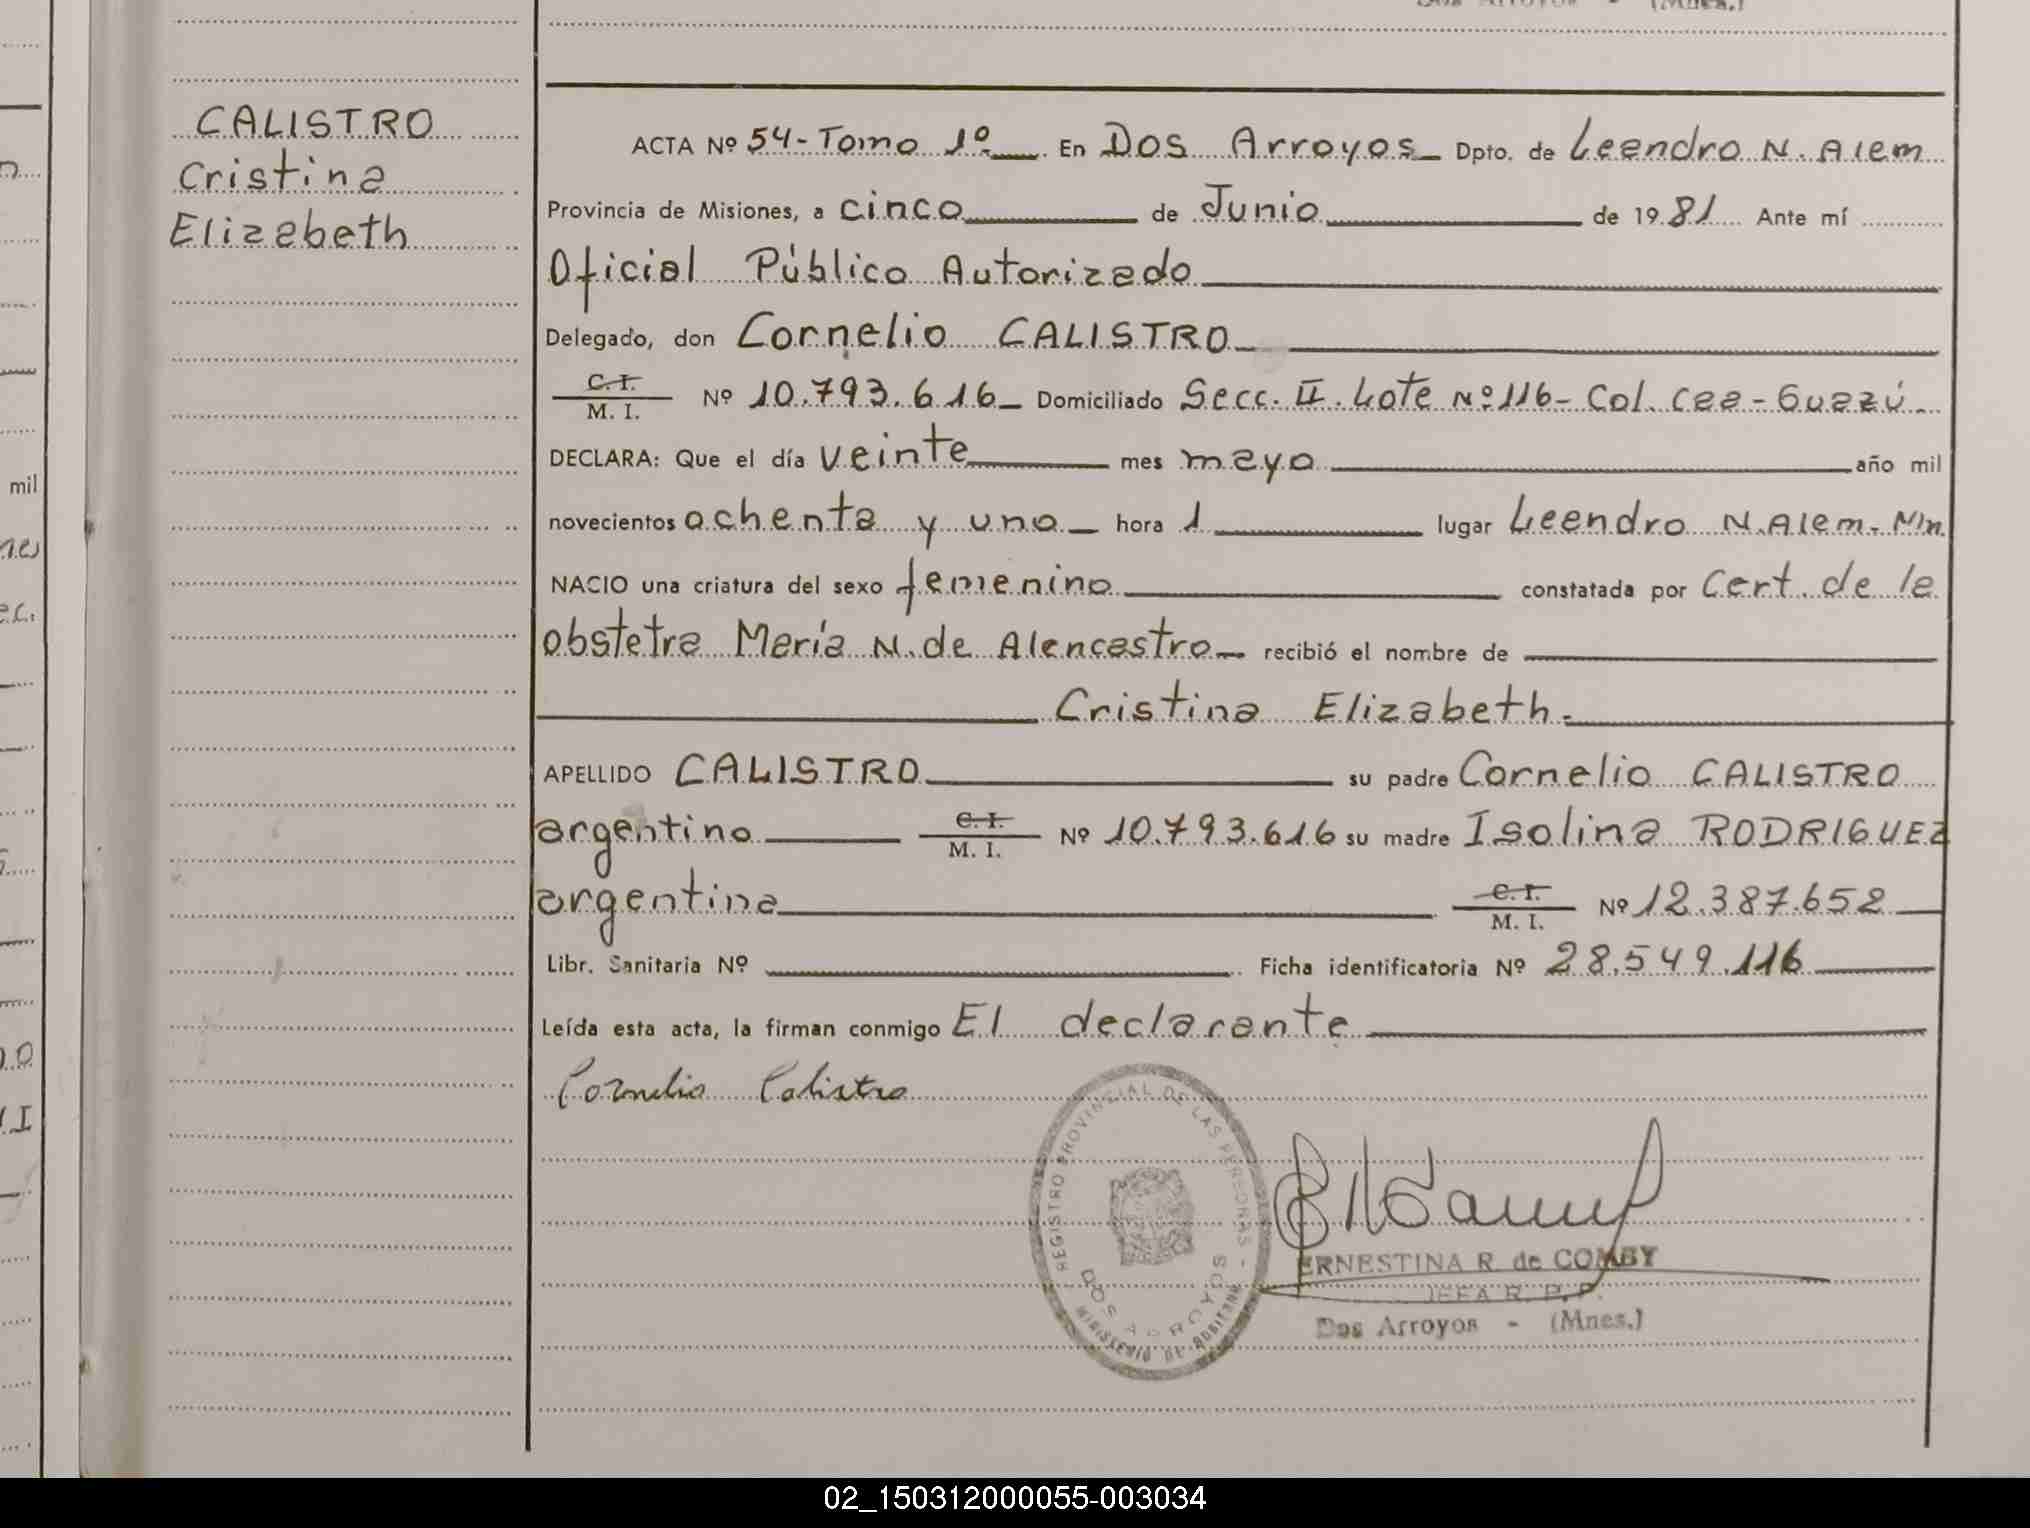 CALISTRO
Cristina
Elizabeth
ACTA Nº 54-Tomo 1º En Dos Arroyos Dpto. de Leandro N. Alem
Provincia de Misiones, a cinco de Junio de 1981 Ante mí
Oficial Público Autorizado
Delegado, don Cornelio CALISTRO
C. I.
M. I. Nº 10.793.616 Domiciliado Secc. II. Lote Nº 116- Col. Caa-Guazú.
DECLARA: Que el día veinte mes mayo año mil
novecientos ochenta y uno hora 1 lugar Leandro N. Alem. Mn.
NACIO una criatura del sexo femenino constatada por Cert. de la
obstetra María N. de Alencastro recibió el nombre de
Cristina Elizabeth.
APELLIDO CALISTRO su padre Cornelio CALISTRO
argentino C. I.
M. I. Nº 10.793.616 su madre Isolina RODRIGUEZ
argentina C. I.
M. I. Nº 12.387.652
Libr. Sanitaria Nº Ficha identificatoria Nº 28.549.116
Leída esta acta, la firman conmigo El declarante
Cornelio Calistro
REGISTRO PROVINCIAL DE LAS PERSONAS
DOS ARROYOS
MINISTERIO DE
ERNESTINA R. de COMBY
JEFA R. P. P.
Dos Arroyos - (Mnes.)
mil
02_150312000055-003034